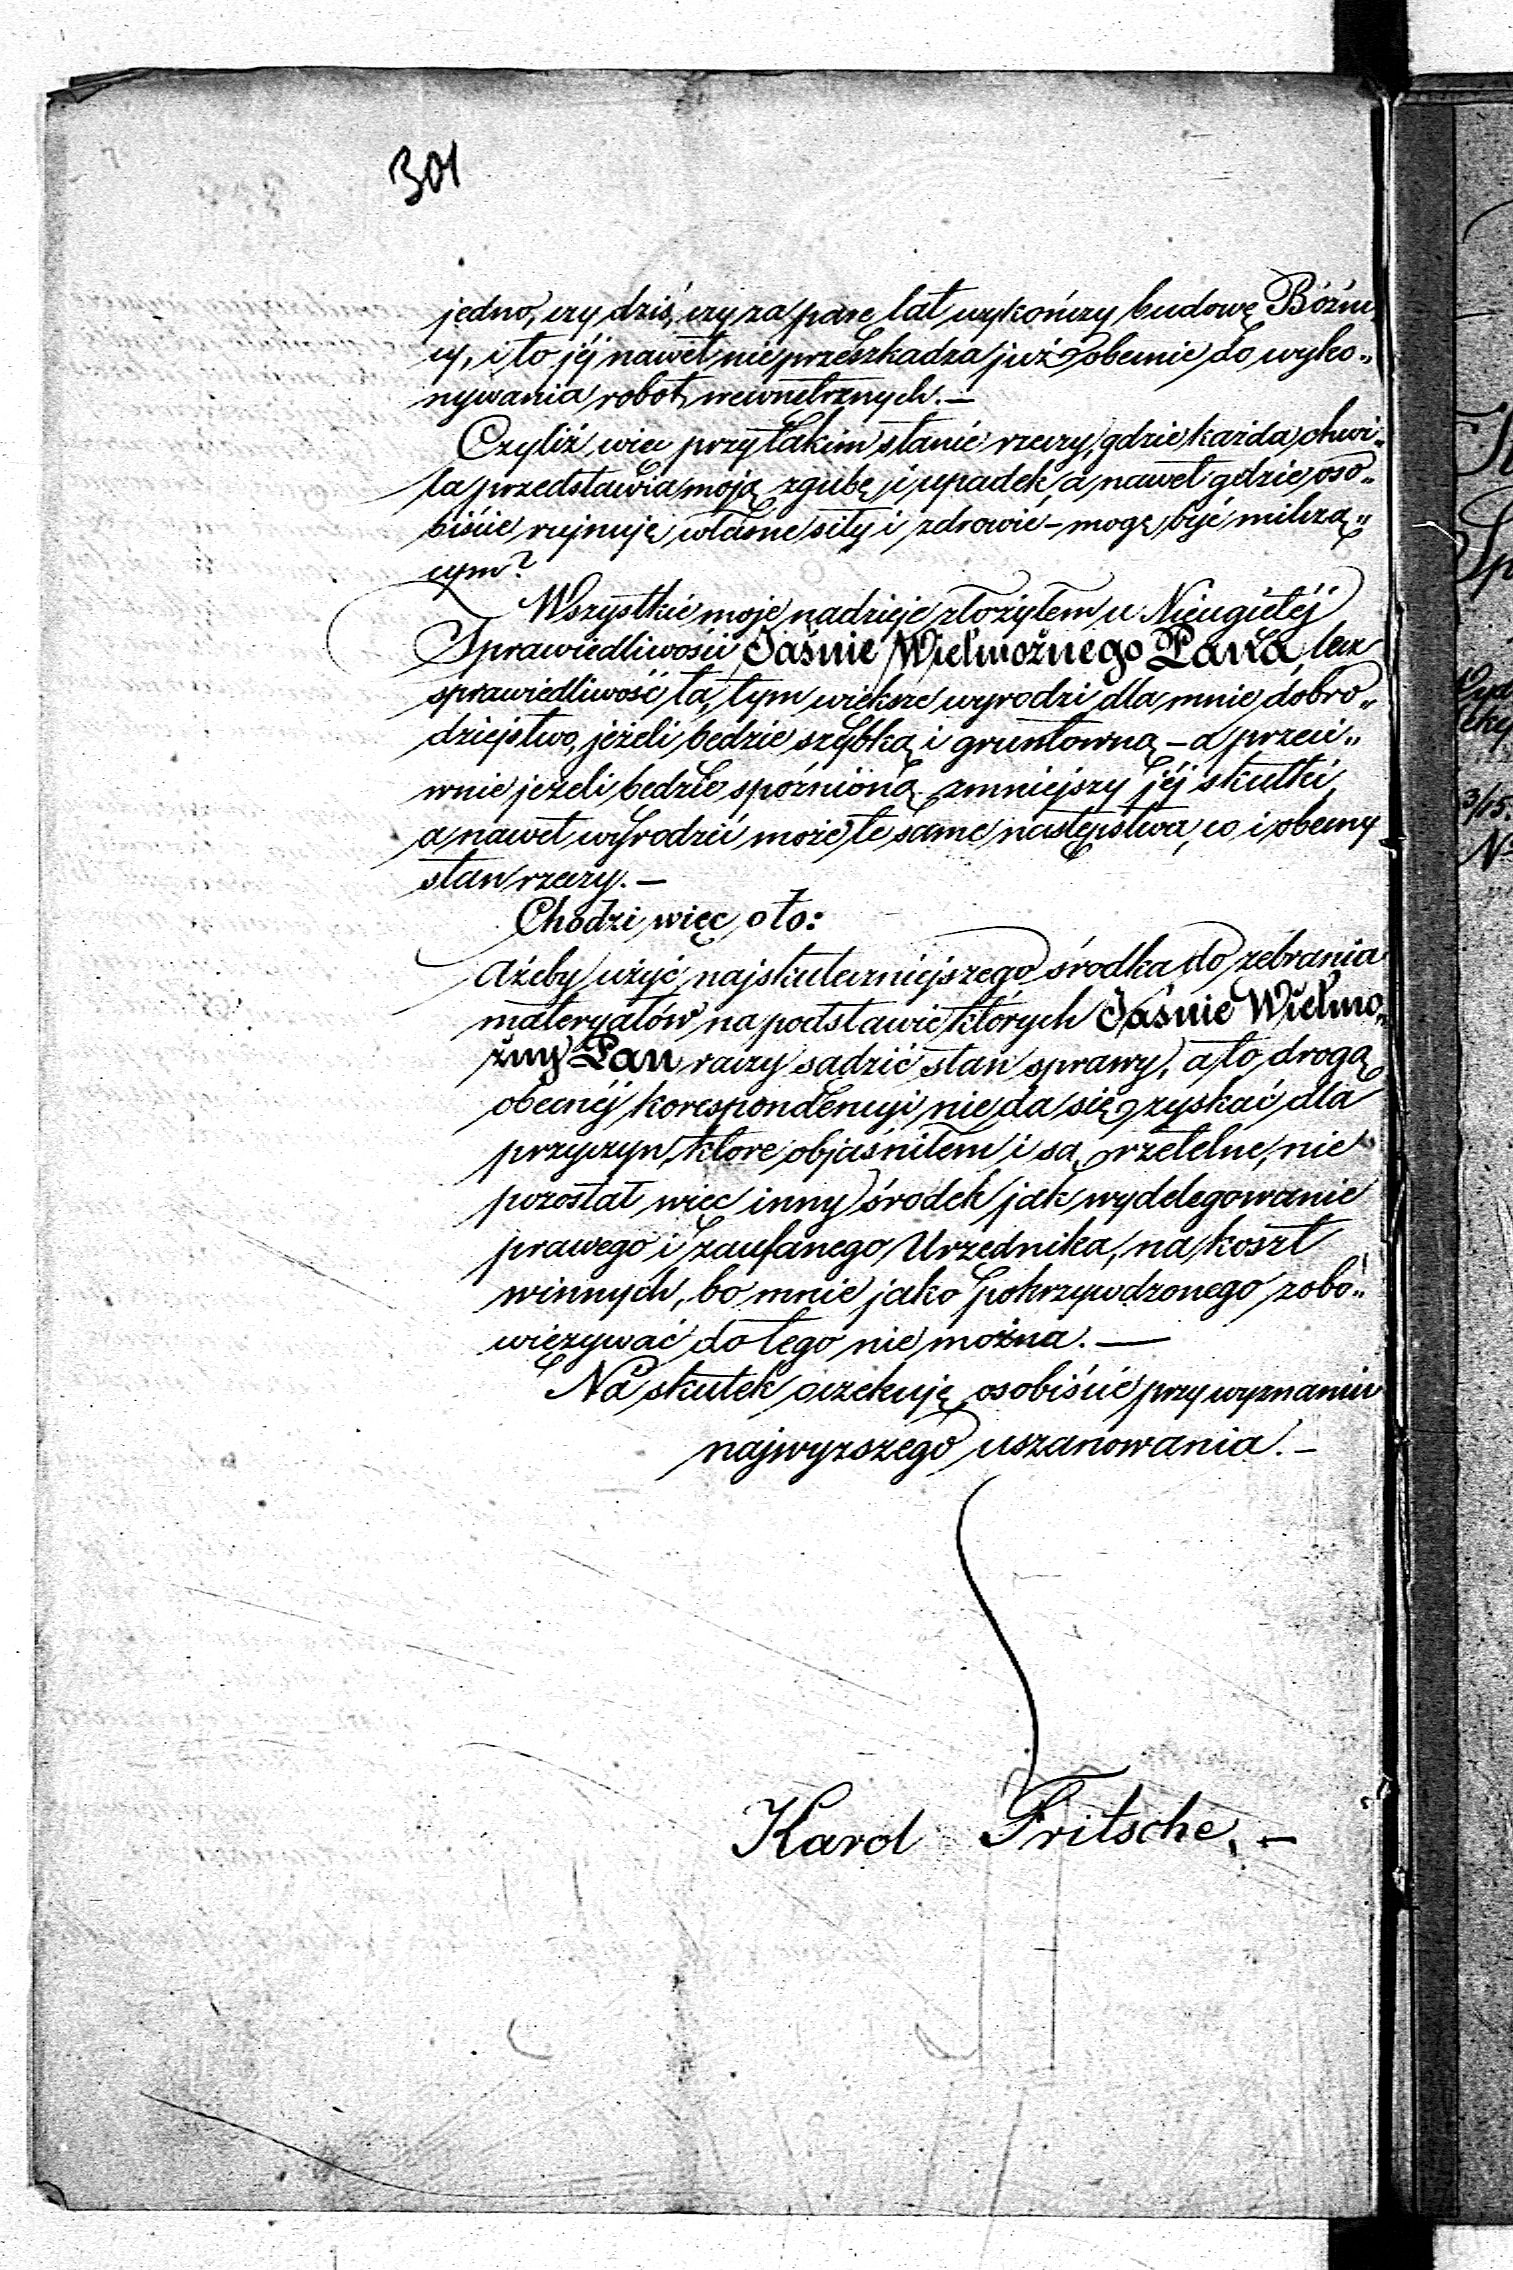 301
jedno, czy dziś, czy za parę lat wykończy budowę Bóźni„
cy, i to jéj nawet nie przeszkadza już obecnie do wyko„
nywania robot wewnętrznych. —
Czyliż więc przy takim stanie rzeczy, gdzie każda chwi„
la przedstawia moją zgubę i upadek, a nawet gdzie oso„
biście rujnuję własne siły i zdrowie – mogę być milczą„
cym?
Wszystkie moje nadzieje złożyłem u Nieugiętéj
Sprawiedliwości Jaśnie Wielmożnego Pana, lecz
sprawiedliwość ta, tym większe wyrodzi dla mnie dobro„
dziejstwo, jeżeli będzie szybką i gruntowną – a przeci„
wnie jeżeli będzie spóźnioną zmniejszy jéj skutki,
a nawet wyrodzić może te same następstwa, co i obecny
stan rzeczy. —
Chodzi więc o to:
ażeby użyć najskuteczniejszego środka do zebrania
materyałów na podstawie których Jaśnie Wielmo„
żny Pan raczy sądzić stan sprawy, a to drogą
obecnéj korespondencyi nie da się zyskać dla
przyczyn, które objaśniłem i są rzetelne, nie
pozostał więc inny środek jak wydelegowanie
prawego i zaufanego Urzędnika, na koszt
winnych, bo mnie jako pokrzywdzonego zobo„
więzywać do tego nie można. —
Na skutek oczekuję osobiście przy wyznaniu
najwyższego uszanowania. –
Karol Fritsche. –